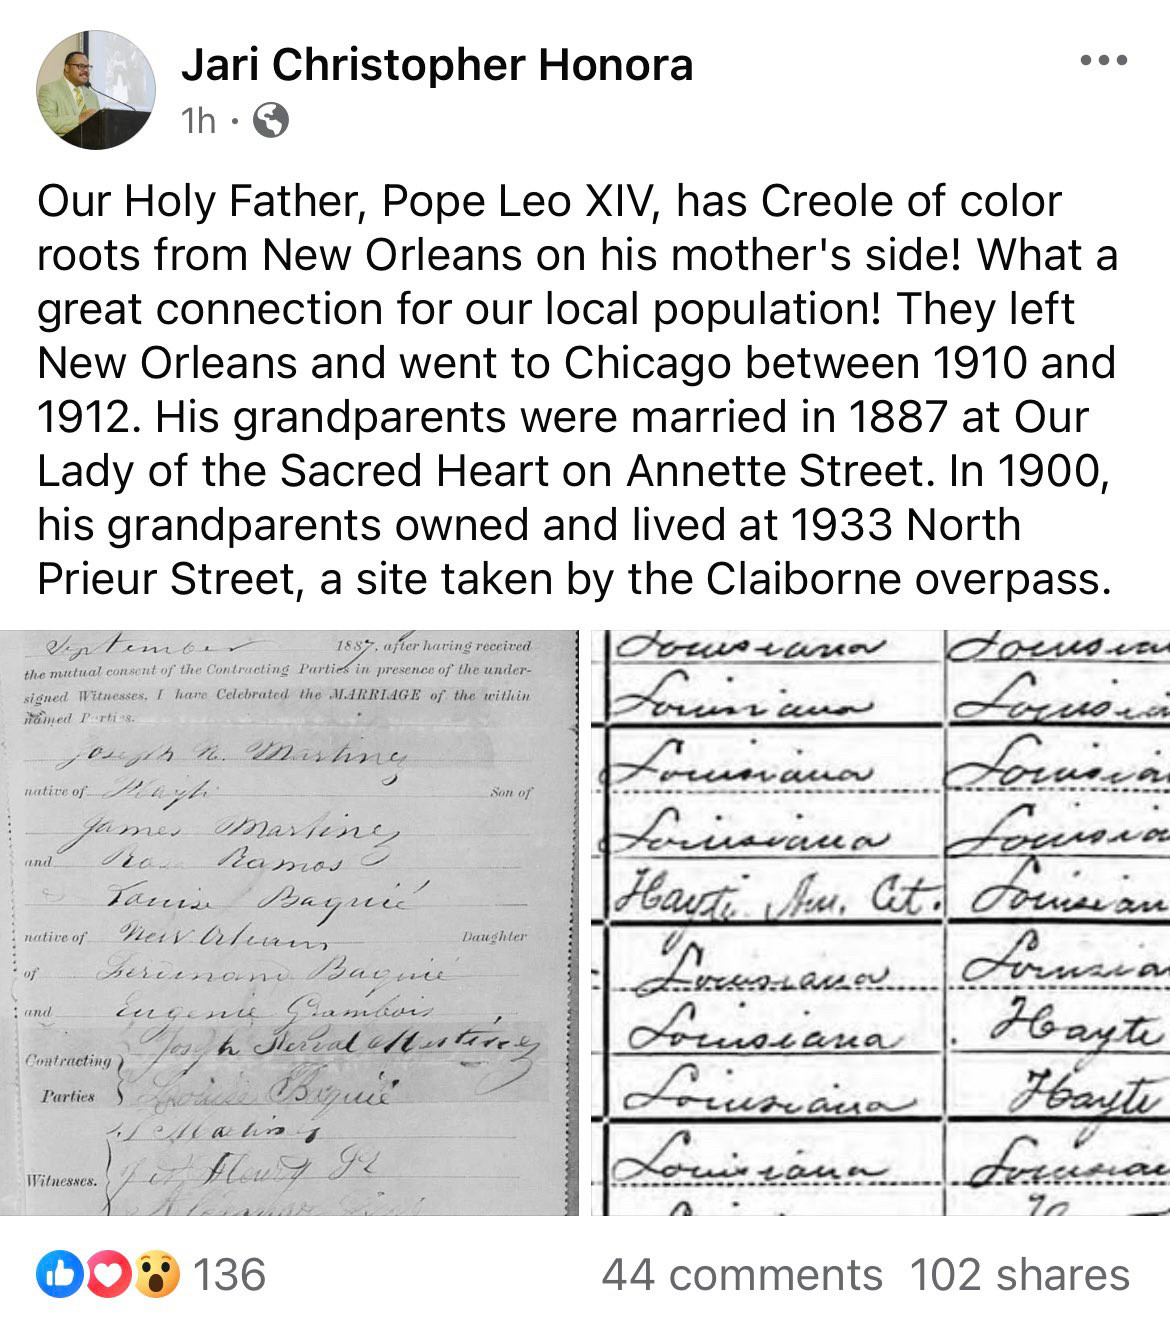 Jari Christopher Honora
1h ·
Our Holy Father, Pope Leo XIV, has Creole of color
roots from New Orleans on his mother's side! What a
great connection for our local population! They left
New Orleans and went to Chicago between 1910 and
1912. His grandparents were married in 1887 at Our
Lady of the Sacred Heart on Annette Street. In 1900,
his grandparents owned and lived at 1933 North
Prieur Street, a site taken by the Claiborne overpass.
September 1887, after having received
the mutual consent of the Contracting Parties in presence of the under-
signed Witnesses, I have Celebrated the MARRIAGE of the within
named Parties.
Joseph N. Martinez
native of Hayti Son of
James Martinez
and Rosa Ramos
Louise Baquié
native of New Orleans Daughter
of Ferdinand Baquié
and Eugenie Grambois
Contracting Joseph Martinez
Parties Louise Baquié
Witnesses.
Louisiana Louisian
Louisiana Louisia
Louisiana Louisian
Louisiana Louisia
Hayti Am. Cit. Louisian
Louisiana Louisia
Louisiana Hayte
Louisiana Hayte
Louisiana Louisian
136 44 comments 102 shares